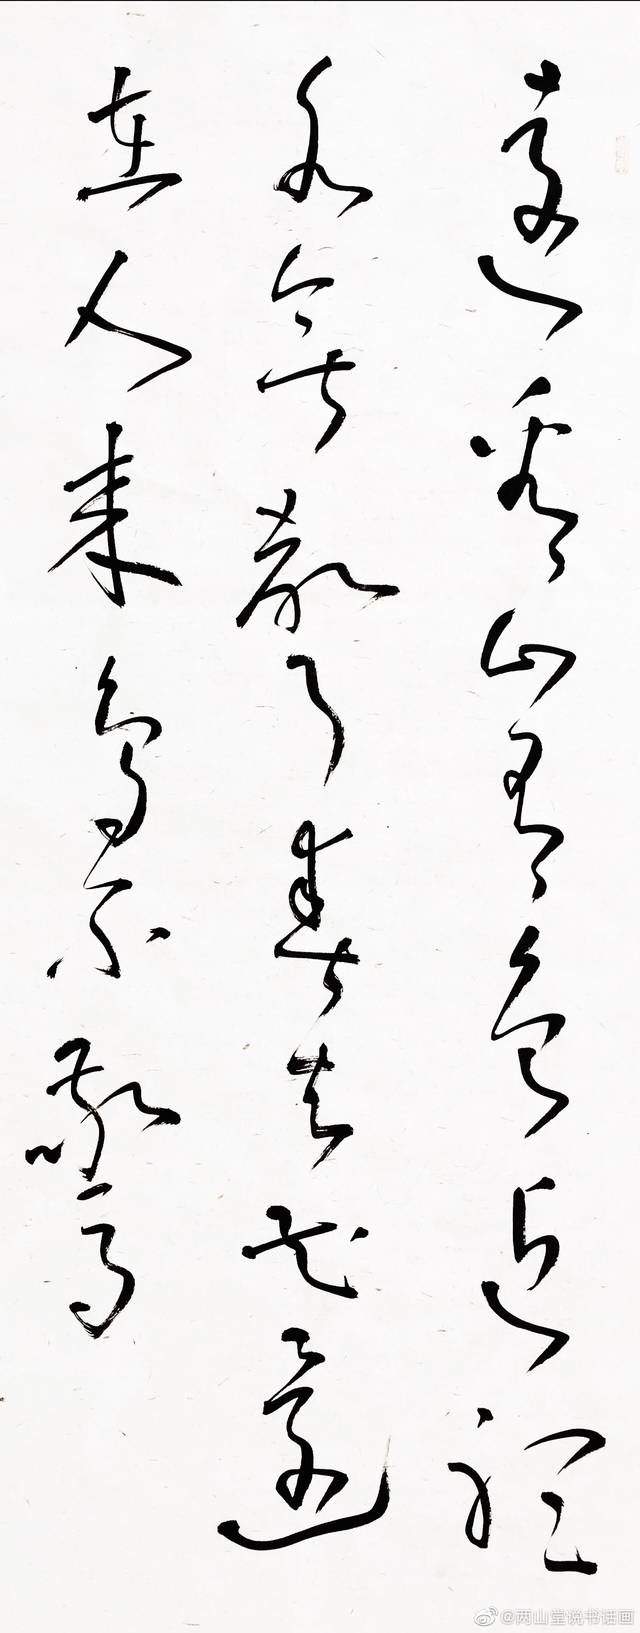 遠看山有色近聽
水無聲春去花還
在人来鳥不驚
@两山堂说书话画